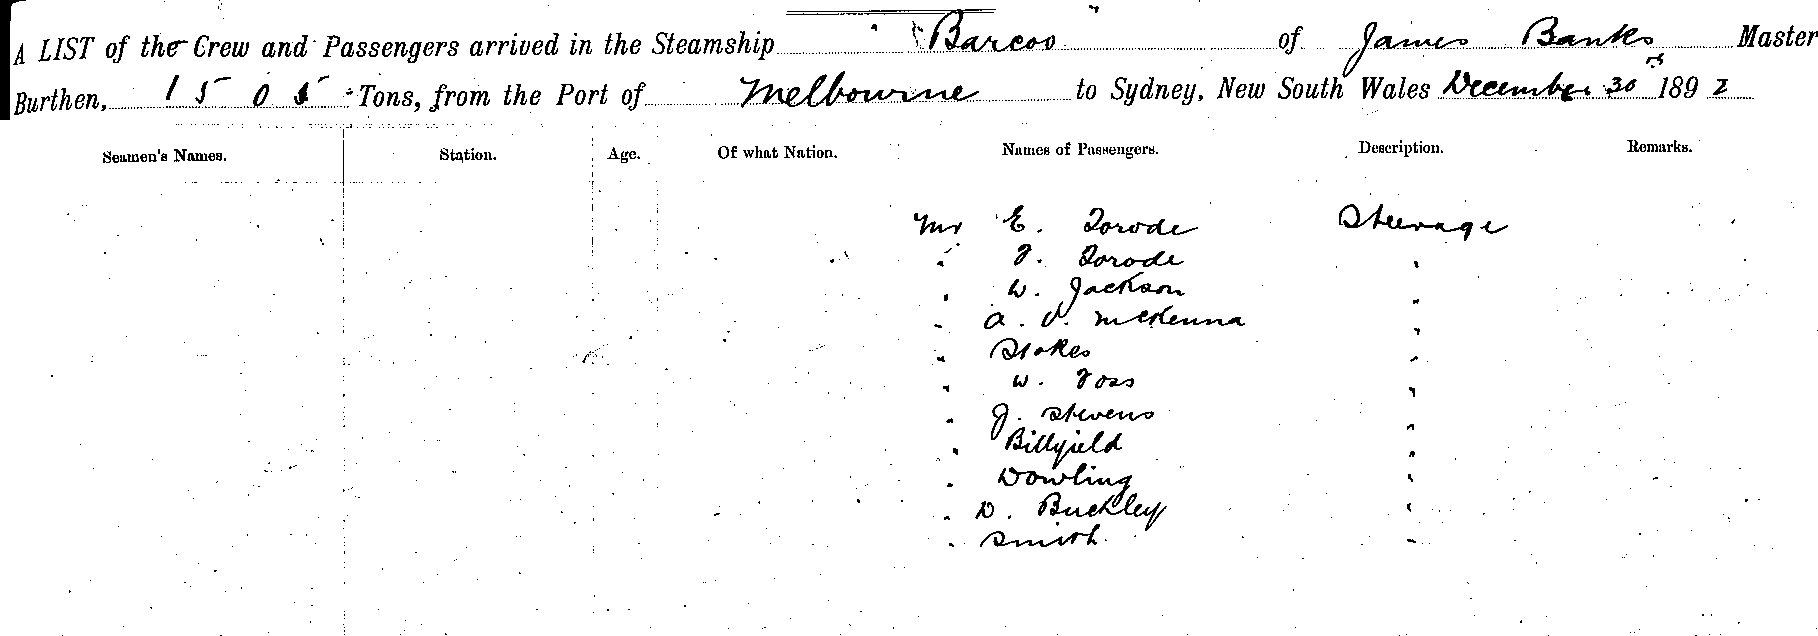 A LIST of the Crew and Passengers arrived in the Steamship Barcoo of James Banks Master
Burthen, 1505 Tons, from the Port of Melbourne to Sydney, New South Wales December 30th 1892
Seamen's Names. Station. Age. Of what Nation. Names of Passengers. Description. Remarks.
Mr E. Torode Steerage
" T. Torode "
" W. Jackson "
" A. V. McKenna "
" Stokes "
" W. Foss "
" J. Stevens "
" Billyield "
" Dowling "
" D. Buckley "
" Smith "